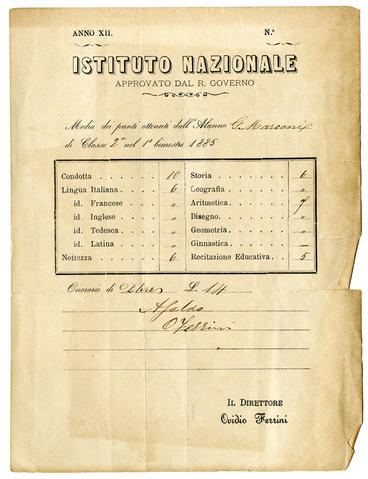 ANNO XII.
N.º
ISTITUTO NAZIONALE
APPROVATO DAL R. GOVERNO
Media dei punti ottenuti dall'Alunno G. Marconi
di Classe 2ª nel 1º bimestre 1885
Condotta . . . . . 10
Lingua Italiana . . . . 6
id. Francese . . . . "
id. Inglese . . . . "
id. Tedesca . . . . "
id. Latina . . . . "
Nettezza . . . . . 6
Storia . . . . . 6
Geografia . . . . . "
Aritmetica . . . . . 7
Disegno. . . . . . "
Geometria . . . . . "
Ginnastica . . . . . —
Recitazione Educativa. . . 5
Onorario di L. 14
A Saldo
O Ferrini
IL DIRETTORE
Ovidio Ferrini